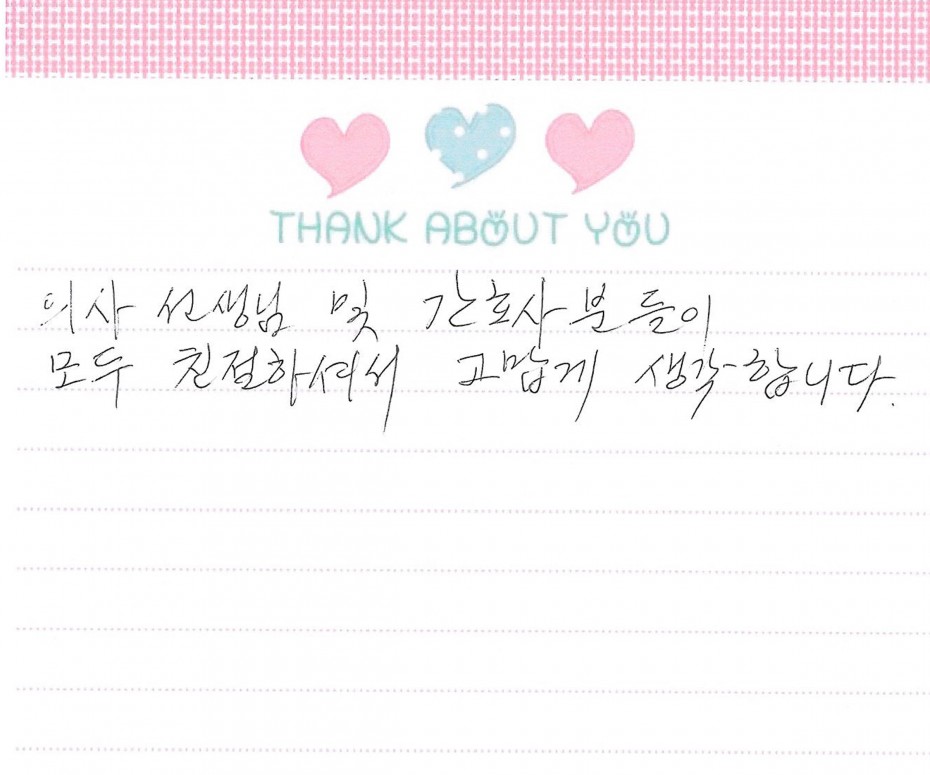 THANK ABOUT YOU
의사 선생님 및 간호사분들이
모두 친절하셔서 고맙게 생각합니다.